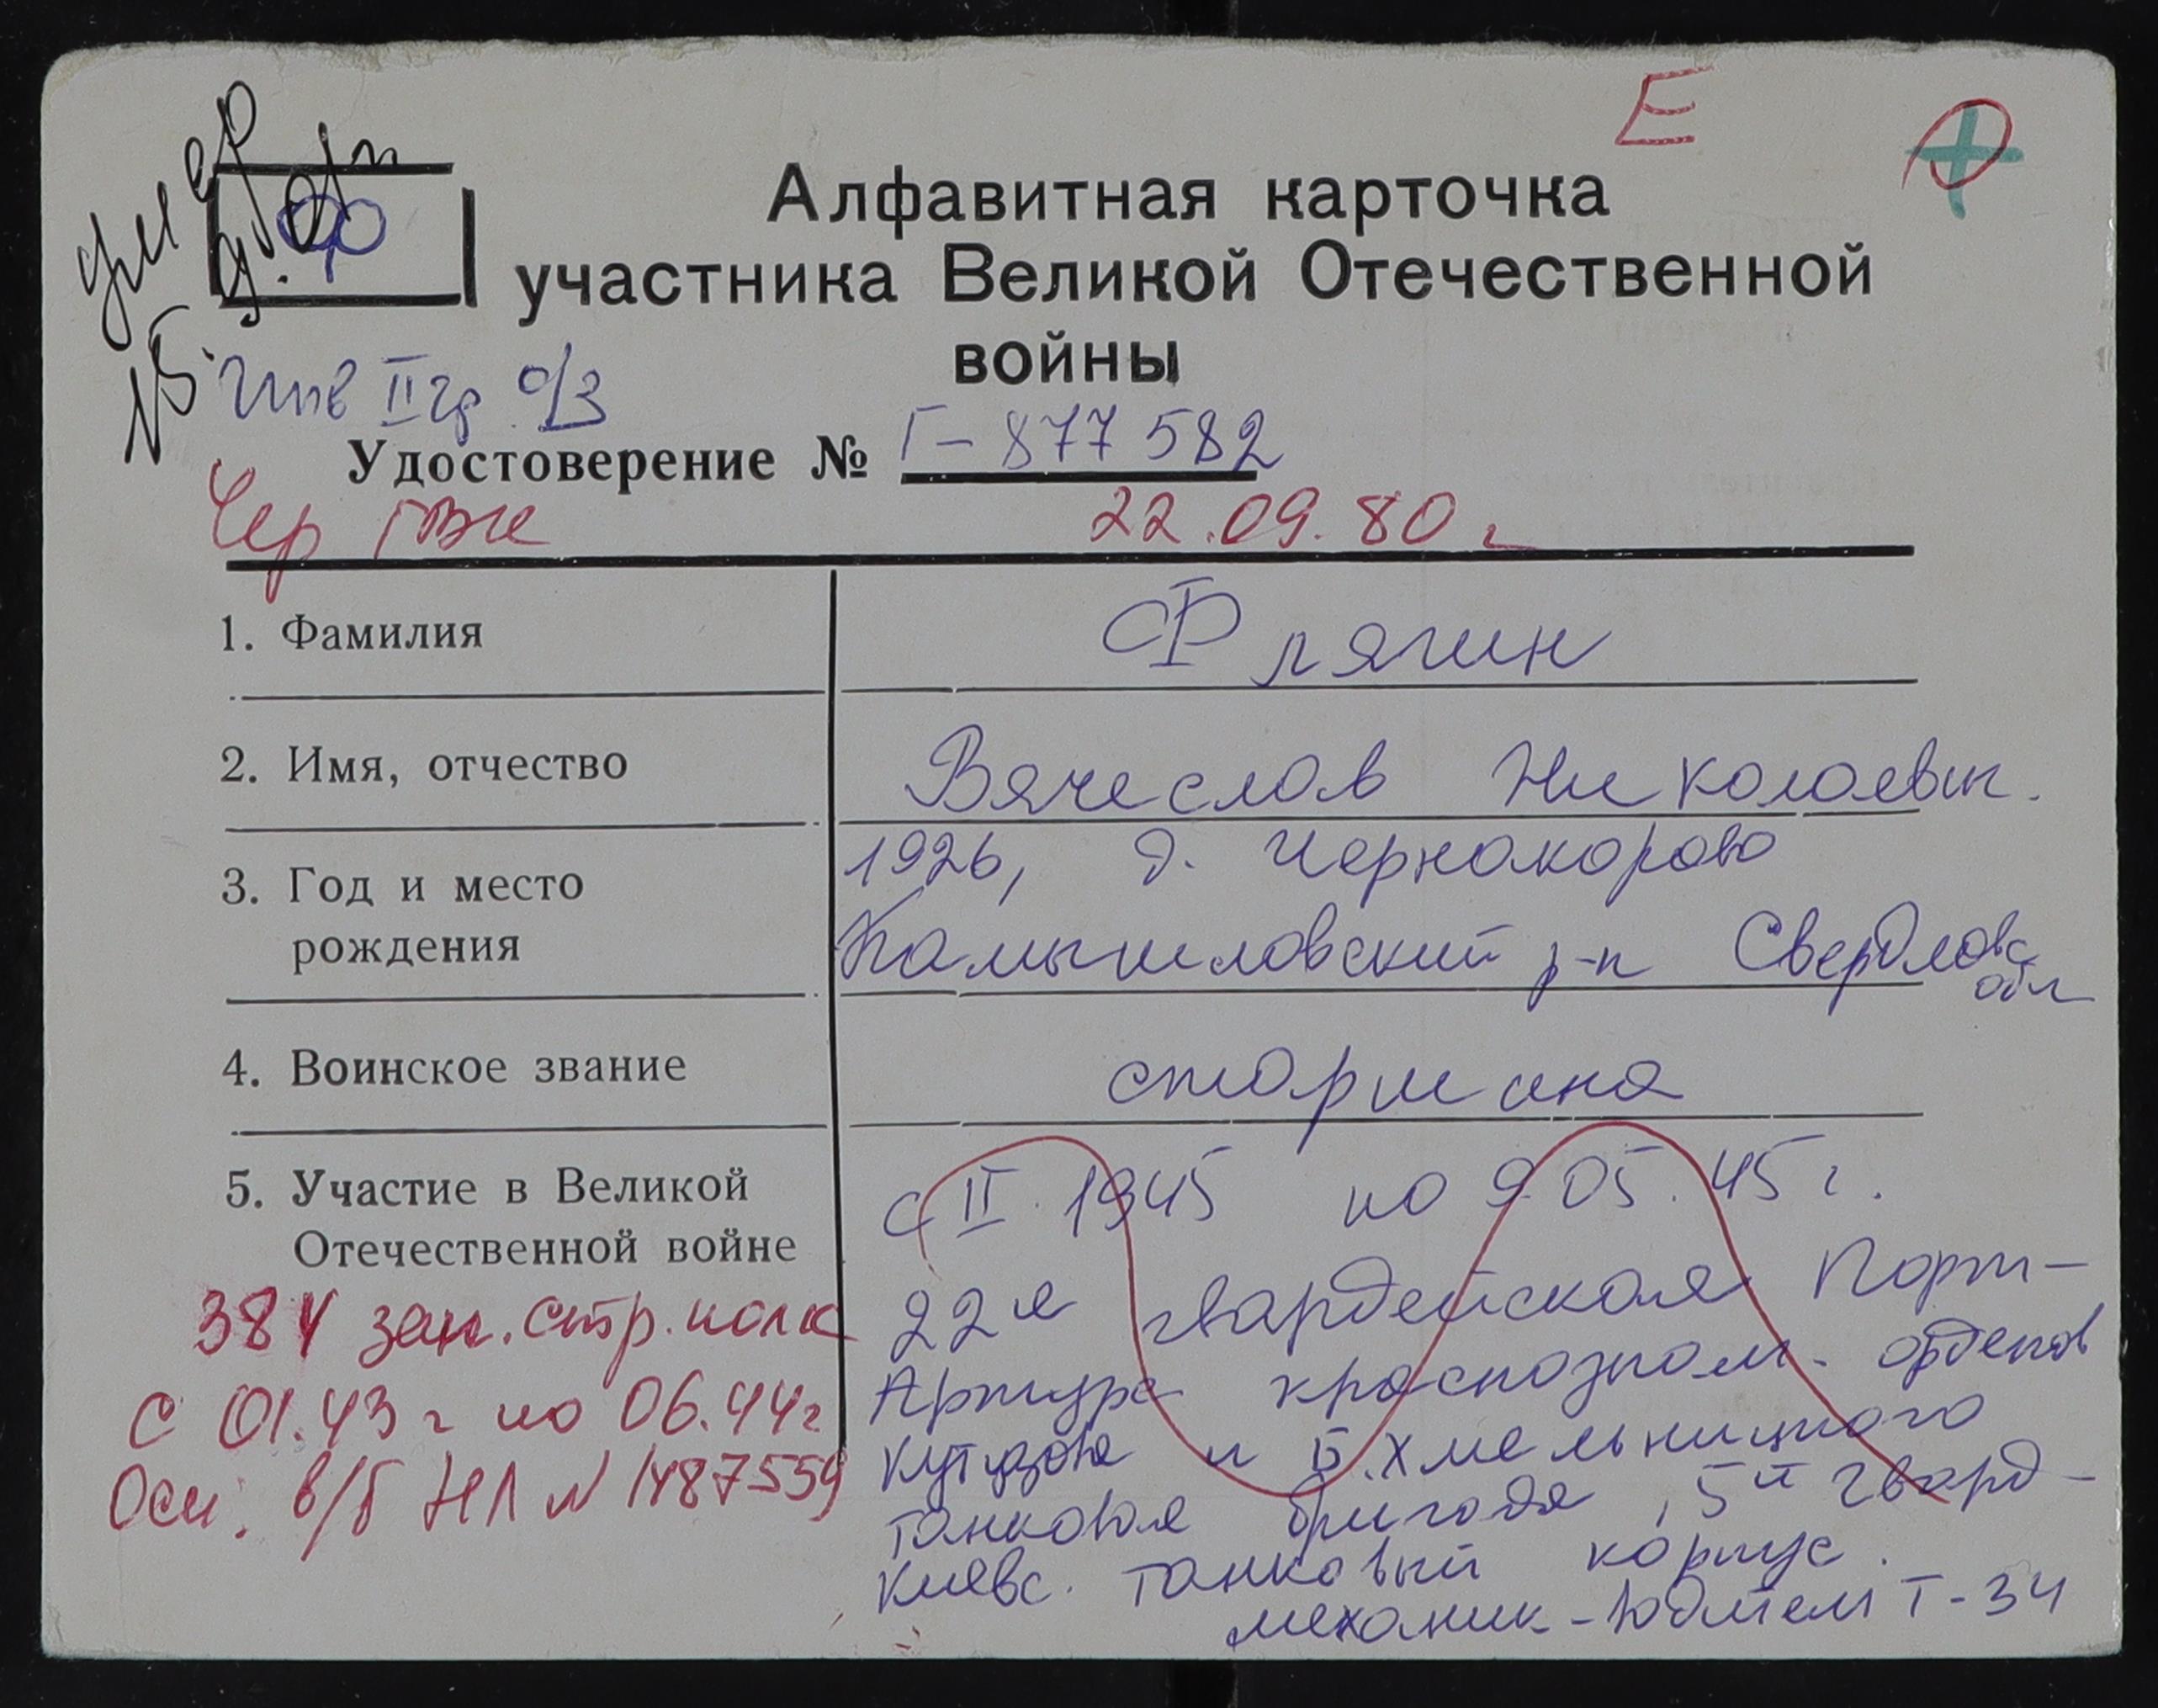 Е
умер
Ф
15.
Алфавитная карточка
участника Великой Отечественной
войны
Инв II гр о/з
Удостоверение № Г-877582
Чер ГВК 22.09.80 г
1. Фамилия Флягин
2. Имя, отчество Вячеслав Николаевич.
3. Год и место рождения 1926, д. Чернокорово
Камышловский р-н Свердловс обл
4. Воинское звание старшина
5. Участие в Великой
Отечественной войне
с II. 1945 по 9.05.45 г.
22я гвардейская Порт-
Артура краснознам. орденов
Кутузова и Б.Хмельницкого
танковая бригада, 5й гвард-
Киевс. танковый корпус.
механик-водител Т-34
384 зап. стр. полк
с 01.43 г по 06.44 г
Осн. в/б НЛ N 1487559